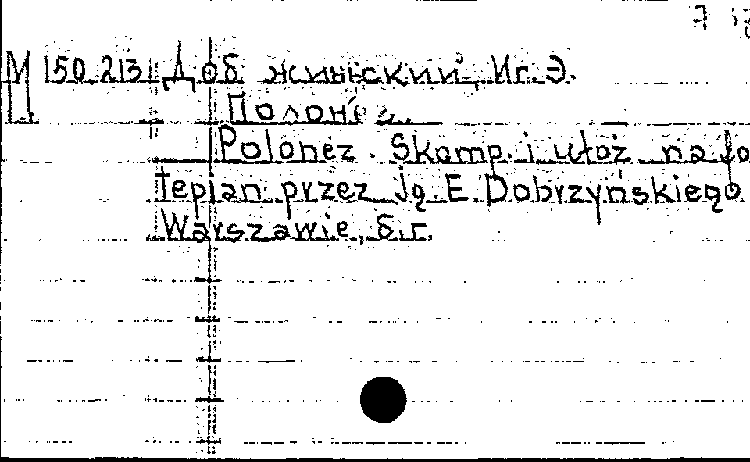 М 150.213 Доб жиньский, Иг. Э.
Полонез.
Polonez. Skomp. i ułoż na fo
tepian przez Jg. E. Dobrzyńskiego
Warszawie, б.г.